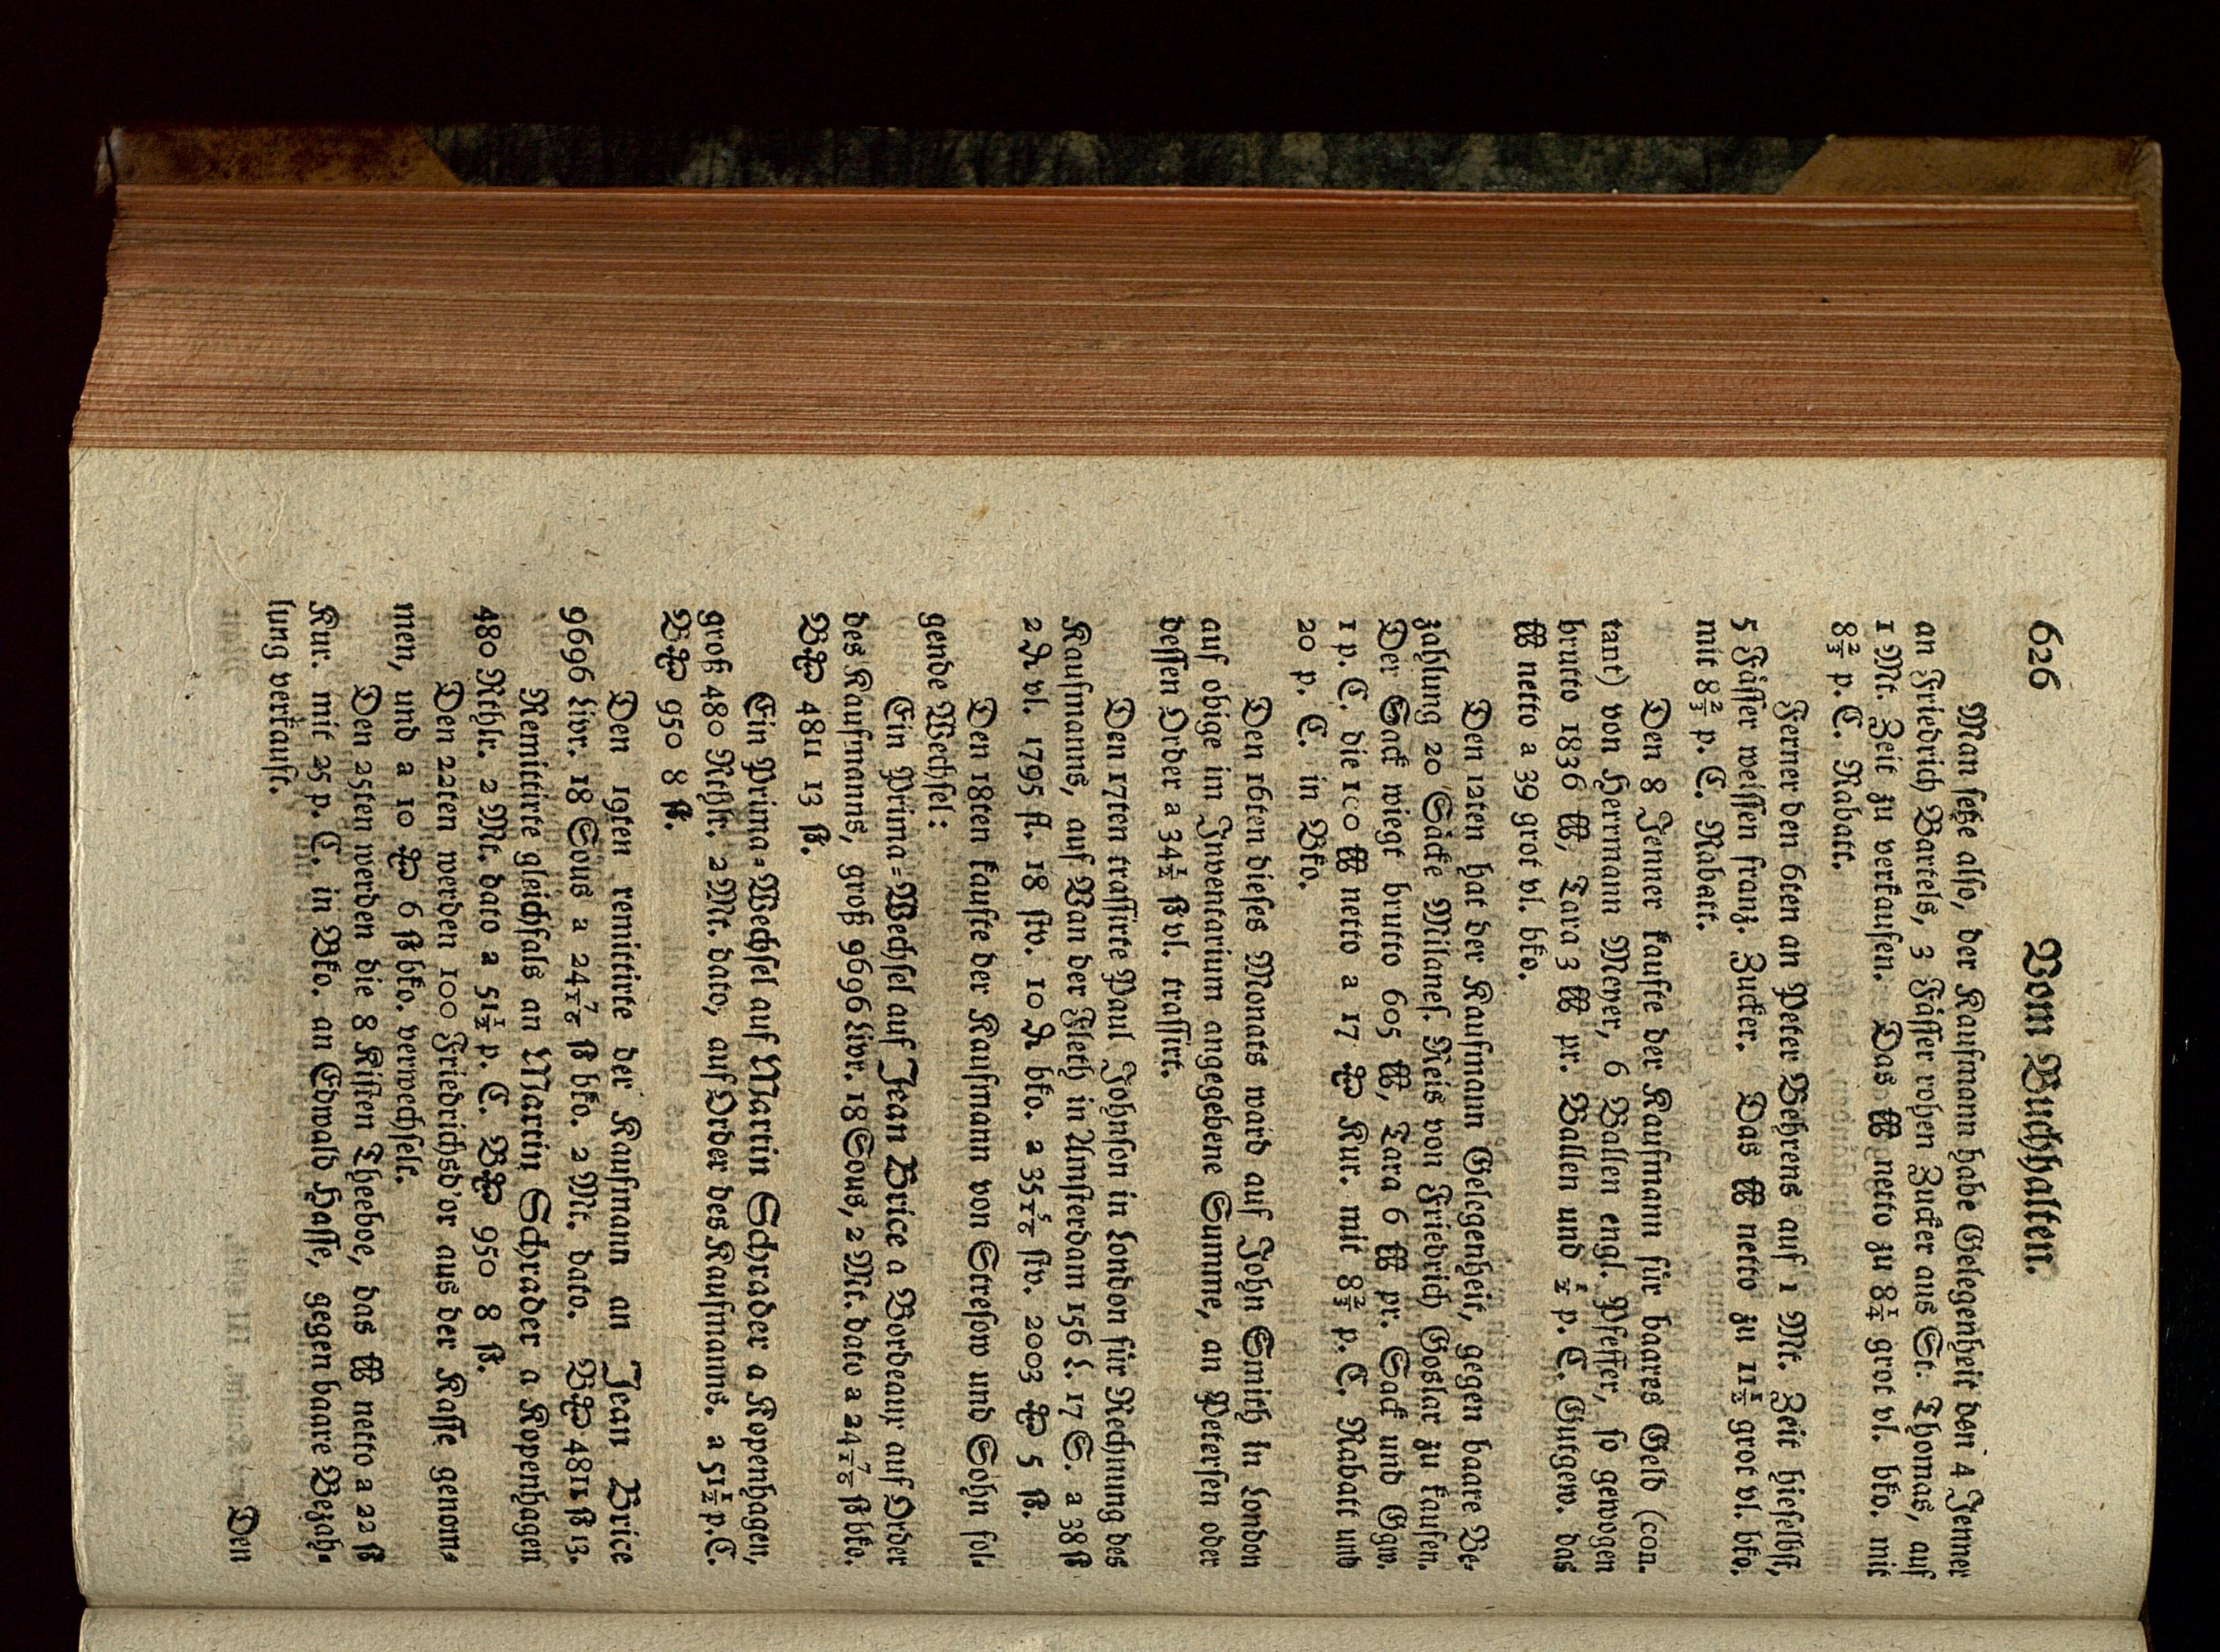 626 Vom Buchhalten.
Man setze also, der Kaufmann habe Gelegenheit den 4 Jenner
an Friedrich Bartels, 3 Fässer rohen Zucker aus St. Thomas, auf
1 Mt. Zeit zu verkaufen. Das ℔ netto zu 8¼ grot vl. bko. mit
8⅔ p. C. Rabatt.
Ferner den 6ten an Peter Behrens auf 1 Mt. Zeit hieselbst,
5 Fässer weissen franz. Zucker. Das ℔ netto zu 11½ grot vl. bko.
mit 8⅔ p. C. Rabatt.
Den 8 Jenner kaufte der Kaufmann für baares Geld (con-
tant) von Herrmann Meyer, 6 Ballen engl. Pfeffer, so gewogen
brutto 1836 ℔, Tara 3 ℔ pr. Ballen und ½ p. C. Gutgew. das
℔ netto a 39 grot vl. bko.
Den 12ten hat der Kaufmann Gelegenheit, gegen baare Be-
zahlung 20 Säcke Milanes. Reis von Friedrich Goslar zu kaufen.
Der Sack wiegt brutto 605 ℔, Tara 6 ℔ pr. Sack und Ggw.
1 p. C. die 100 ℔ netto a 17 M͞ Kur. mit 8⅔ p. C. Rabatt und
20 p. C. in Bko.
Den 16ten dieses Monats ward auf John Smith in London
auf obige im Inventarium angegebene Summe, an Petersen oder
dessen Order a 34½ ßvl. trassirt.
Den 17ten trassirte Paul Johnson in London für Rechnung des
Kaufmanns, auf Van der Fleth in Amsterdam 156 L. 17 S. a 38 ß
2 ₰ vl. 1795 fl. 18 stv. 10 ₰ bko. a 35 5/16 stv. 2003 M͞ 5 ß.
Den 18ten kaufte der Kaufmann von Stresow und Sohn fol-
gende Wechsel:
Ein Prima-Wechsel auf Jean Brice a Bordeaux auf Order
des Kaufmanns, groß 9696 Livr. 18 Sous, 2 Mt. dato a 24 7/16 ß bko.
BM͞ 4811 13 ß.
Ein Prima-Wechsel auf Martin Schrader a Kopenhagen,
groß 480 Rthlr. 2 Mt. dato, auf Order des Kaufmanns. a 51½ p. C.
BM͞ 950 8 ß.
Den 19ten remittirte der Kaufmann an Jean Brice
9696 Livr. 18 Sous a 24 7/16 ß bko. 2 Mt. dato. BM͞ 4811 ß 13.
Remittirte gleichfals an Martin Schrader a Kopenhagen
480 Rthlr. 2 Mt. dato a 51½ p. C. BM͞ 950 8 ß.
Den 22ten werden 100 Friedrichsd'or aus der Kasse genom-
men, und a 10 M͞ 6 ß bko. verwechselt.
Den 25sten werden die 8 Kisten Theeboe, das ℔ netto a 22 ß
Kur. mit 25 p. C. in Bko. an Ewald Hasse, gegen baare Bezah-
lung verkauft.
Den